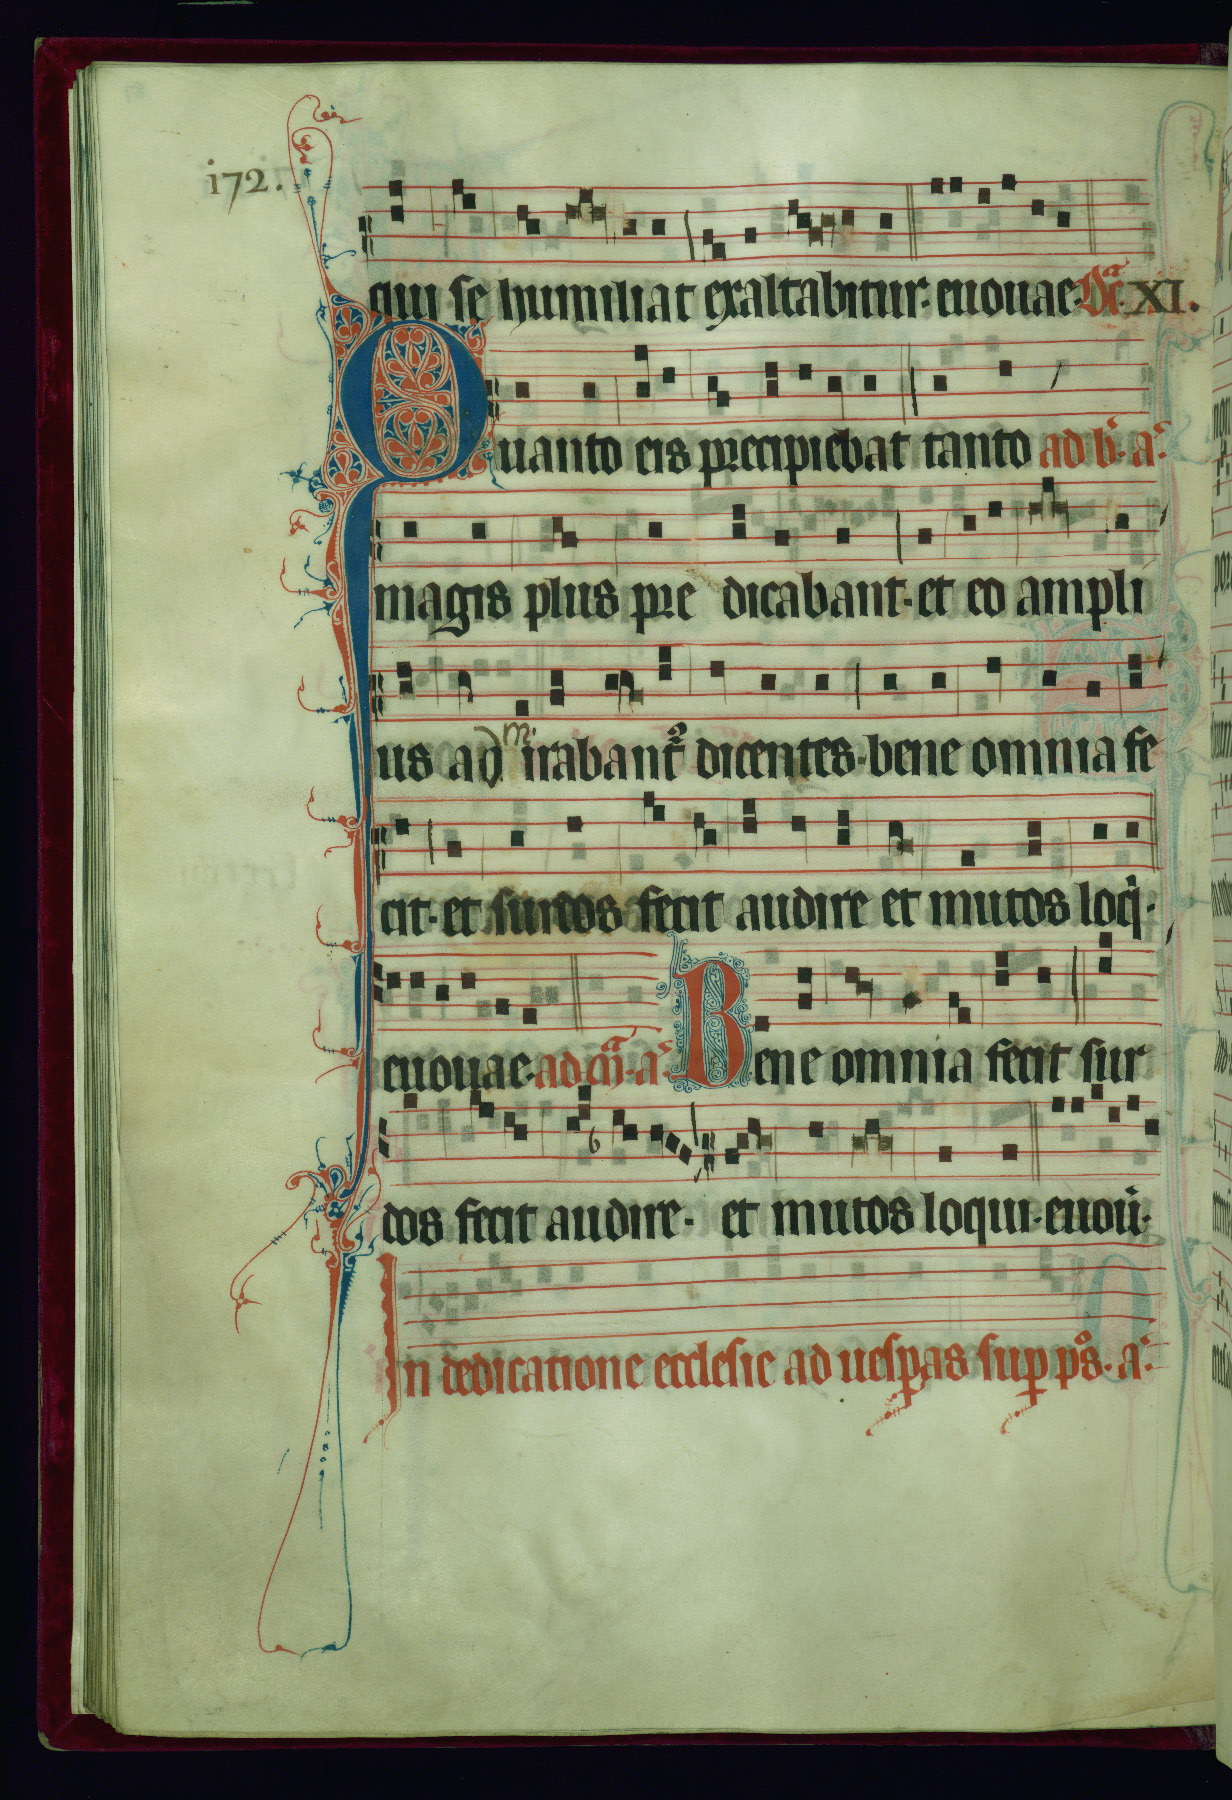 i72.
qui se humiliat exaltabitur. euouae. Dc̄a. XI.
Quanto eis precipiebat tanto ad b̄. a᷒.
magis plus pre dicabant. et eo ampli
us adm̄irabant᷑ dicentes. bene omnia fe
cit. et surdos fecit audire et mutos loq̄.
euouae. ad m̄a. a᷒. Bene omnia fecit sur
dos fecit audire. et mutos loqui. euoū.
In dedicatione ecclesie ad uesꝑas suꝑ pō s. a᷒.